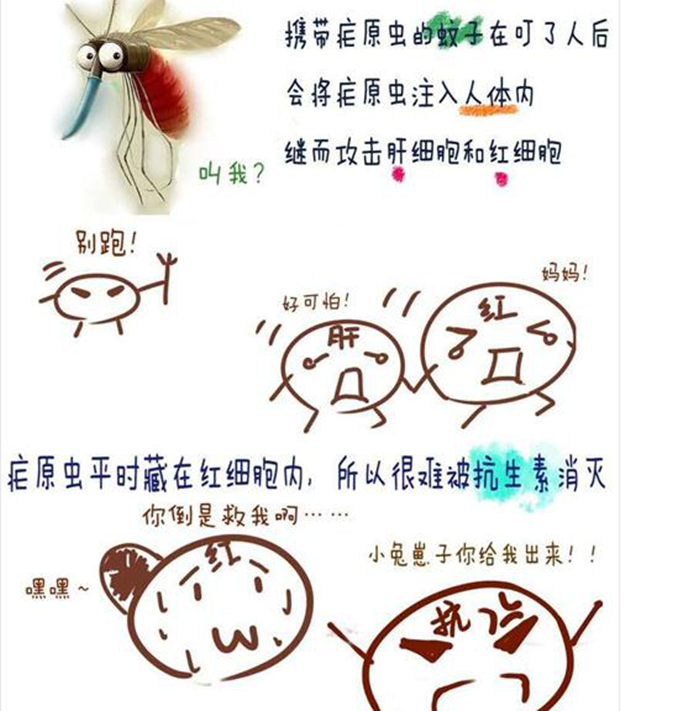 携带疟原虫的蚊子在叮了人后
会将疟原虫注入人体内
继而攻击肝细胞和红细胞
叫我?
别跑!
妈妈!
好可怕!
红
肝
疟原虫平时藏在红细胞内,所以很难被抗生素消灭
你倒是救我啊……
小兔崽子你给我出来!!
红
嘿嘿~
抗